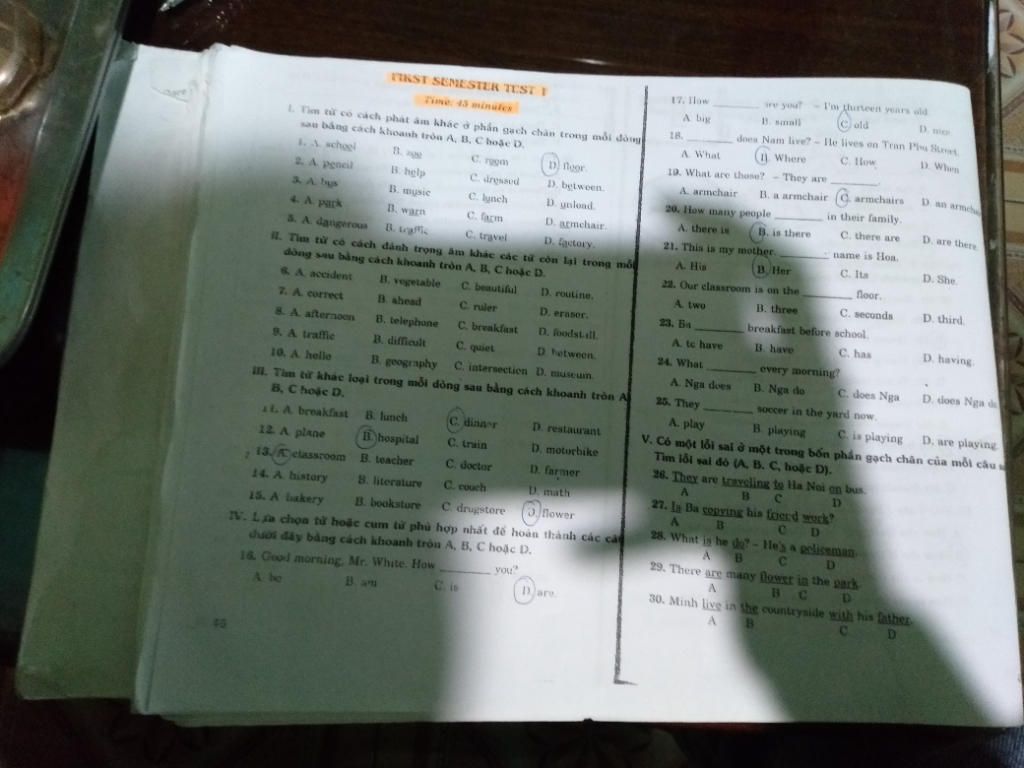 FIRST SEMESTER TEST 1
Time: 45 minutes
I. Tìm từ có cách phát âm khác ở phần gạch chân trong mỗi dòng
sau bằng cách khoanh tròn A, B, C hoặc D.
1. A. school B. zoo C. room D. floor.
2. A. pencil B. help C. dressed D. between.
3. A. bus B. music C. lunch D. unload.
4. A. park B. warn C. farm D. armchair.
5. A. dangerous B. traffic C. travel D. factory.
II. Tìm từ có cách đánh trọng âm khác các từ còn lại trong mỗi
dòng sau bằng cách khoanh tròn A, B, C hoặc D.
6. A. accident B. vegetable C. beautiful D. routine.
7. A. correct B. ahead C. ruler D. eraser.
8. A. afternoon B. telephone C. breakfast D. foodstall.
9. A. traffic B. difficult C. quiet D. between.
10. A. hello B. geography C. intersection D. museum.
III. Tìm từ khác loại trong mỗi dòng sau bằng cách khoanh tròn A
B, C hoặc D.
11. A. breakfast B. lunch C. dinner D. restaurant
12. A. plane B. hospital C. train D. motorbike
13. A. classroom B. teacher C. doctor D. farmer
14. A. history B. literature C. couch D. math
15. A. bakery B. bookstore C. drugstore D. flower
IV. Lựa chọn từ hoặc cụm từ phù hợp nhất để hoàn thành các câu
dưới đây bằng cách khoanh tròn A, B, C hoặc D.
16. Good morning, Mr. White. How ________ you?
A. be B. am C. is D. are.
46
17. How ________ are you? – I'm thirteen years old.
A. big B. small C. old D. nice
18. ________ does Nam live? – He lives on Tran Phu Street.
A. What B. Where C. How D. When
19. What are those? – They are ________.
A. armchair B. a armchair C. armchairs D. an armchair
20. How many people ________ in their family.
A. there is B. is there C. there are D. are there
21. This is my mother. ________ name is Hoa.
A. His B. Her C. Its D. She.
22. Our classroom is on the ________ floor.
A. two B. three C. seconds D. third.
23. Ba ________ breakfast before school.
A. to have B. have C. has D. having.
24. What ________ every morning?
A. Nga does B. Nga do C. does Nga D. does Nga do
25. They ________ soccer in the yard now.
A. play B. playing C. is playing D. are playing
V. Có một lỗi sai ở một trong bốn phần gạch chân của mỗi câu
Tìm lỗi sai đó (A, B, C, hoặc D).
26. They are traveling to Ha Noi on bus.
A B C D
27. Is Ba copying his friend work?
A B C D
28. What is he do? – He's a policeman.
A B C D
29. There are many flower in the park
A B C D
30. Minh live in the countryside with his father.
A B C D